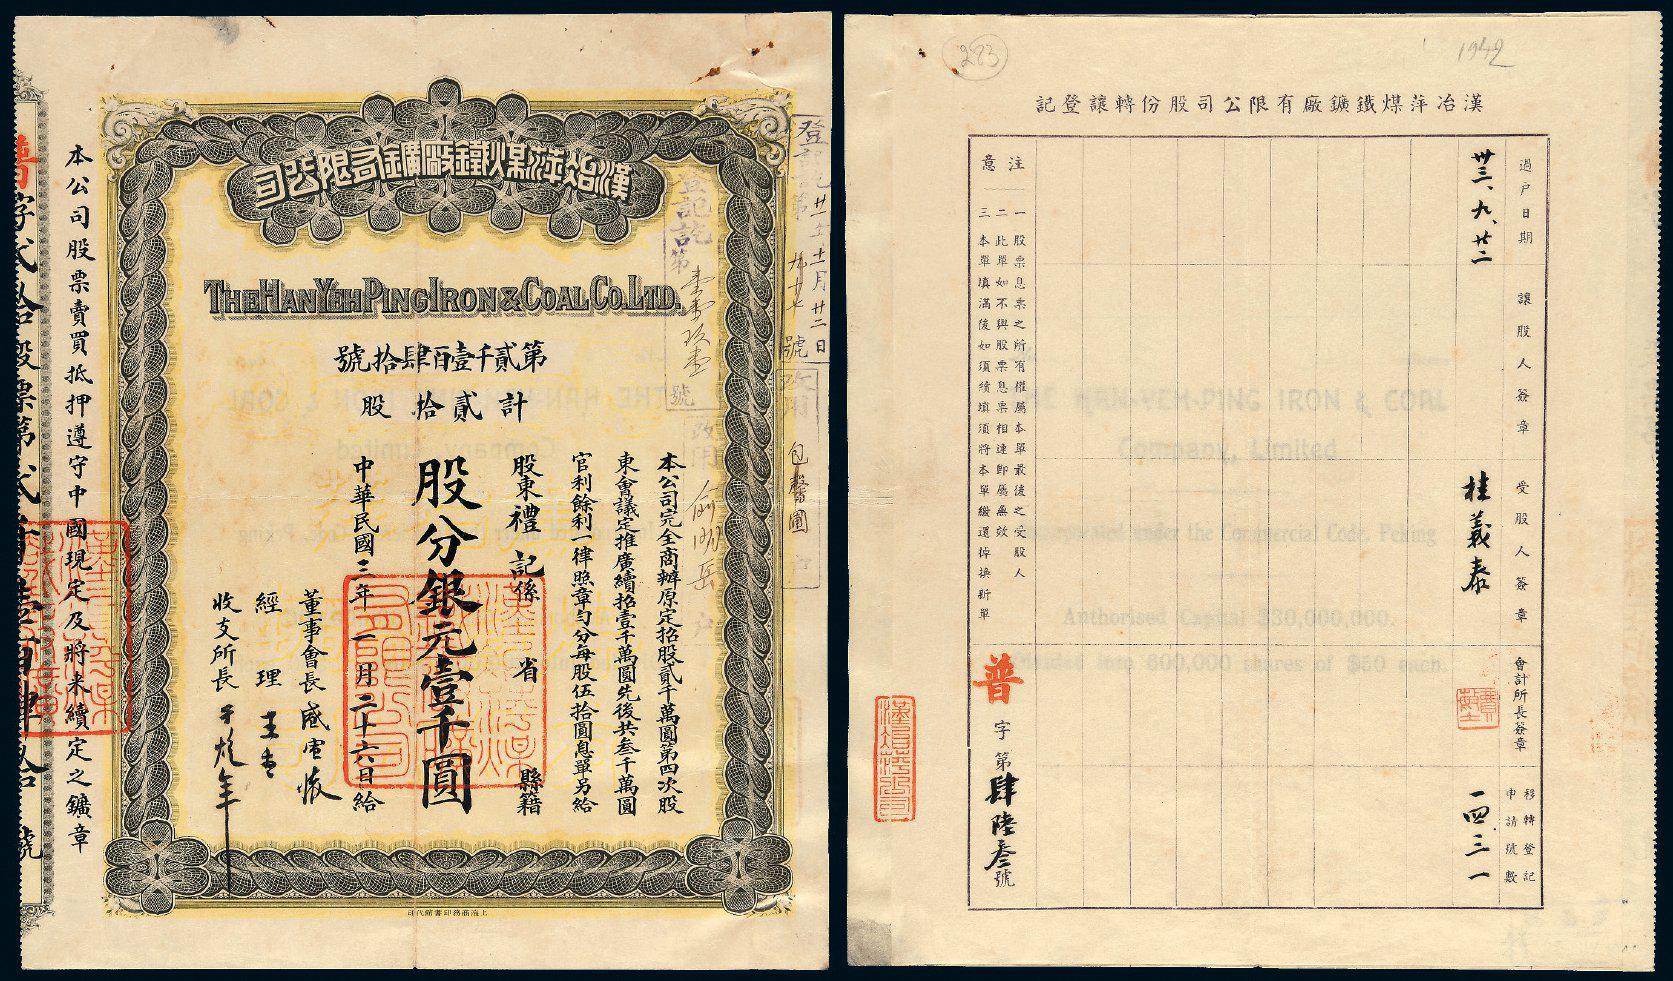 漢冶萍煤鐵廠鑛有限公司
THE HAN YEH PING IRON & COAL CO. LTD.
第貳千壹百肆拾號
計貳拾股
本公司完全商辦原定招股貳千萬圓第四次股
東會議定推廣續招壹千萬圓先後共叁千萬圓
官利餘利一律照章勻分每股伍拾圓息單另給
股東禮記係 省 縣籍
股分銀元壹千圓
中華民國三年一月二十六日給
董事會長盛宣懷
經理
收支所長
本公司股票賣買抵押遵守中國現定及將來續定之鑛章
普字貳拾股票第貳千壹百肆拾號
上海商務印書館代印
登記第
廿二日
號
登記訖第
號
改用
戶
283
1942
漢冶萍煤鐵鑛廠有限公司股份轉讓登記
過戶日期
讓股人簽章
受股人簽章
會計所長簽章
移轉登記
申請號數
卅三、九、廿二
桂義泰
一四三一
注意
一 股票息票之所有權屬本單最後之受股人
二 此單如不與股票息票相連即屬無效
三 本單填滿後如須續填須將本單繳還掉換新單
普字第肆陸叁號
THE HAN-YEH-PING IRON & COAL
Company, Limited
Incorporated under the Commercial Code, Peking
Authorised Capital $30,000,000.
Divided into 600,000 shares of $50 each